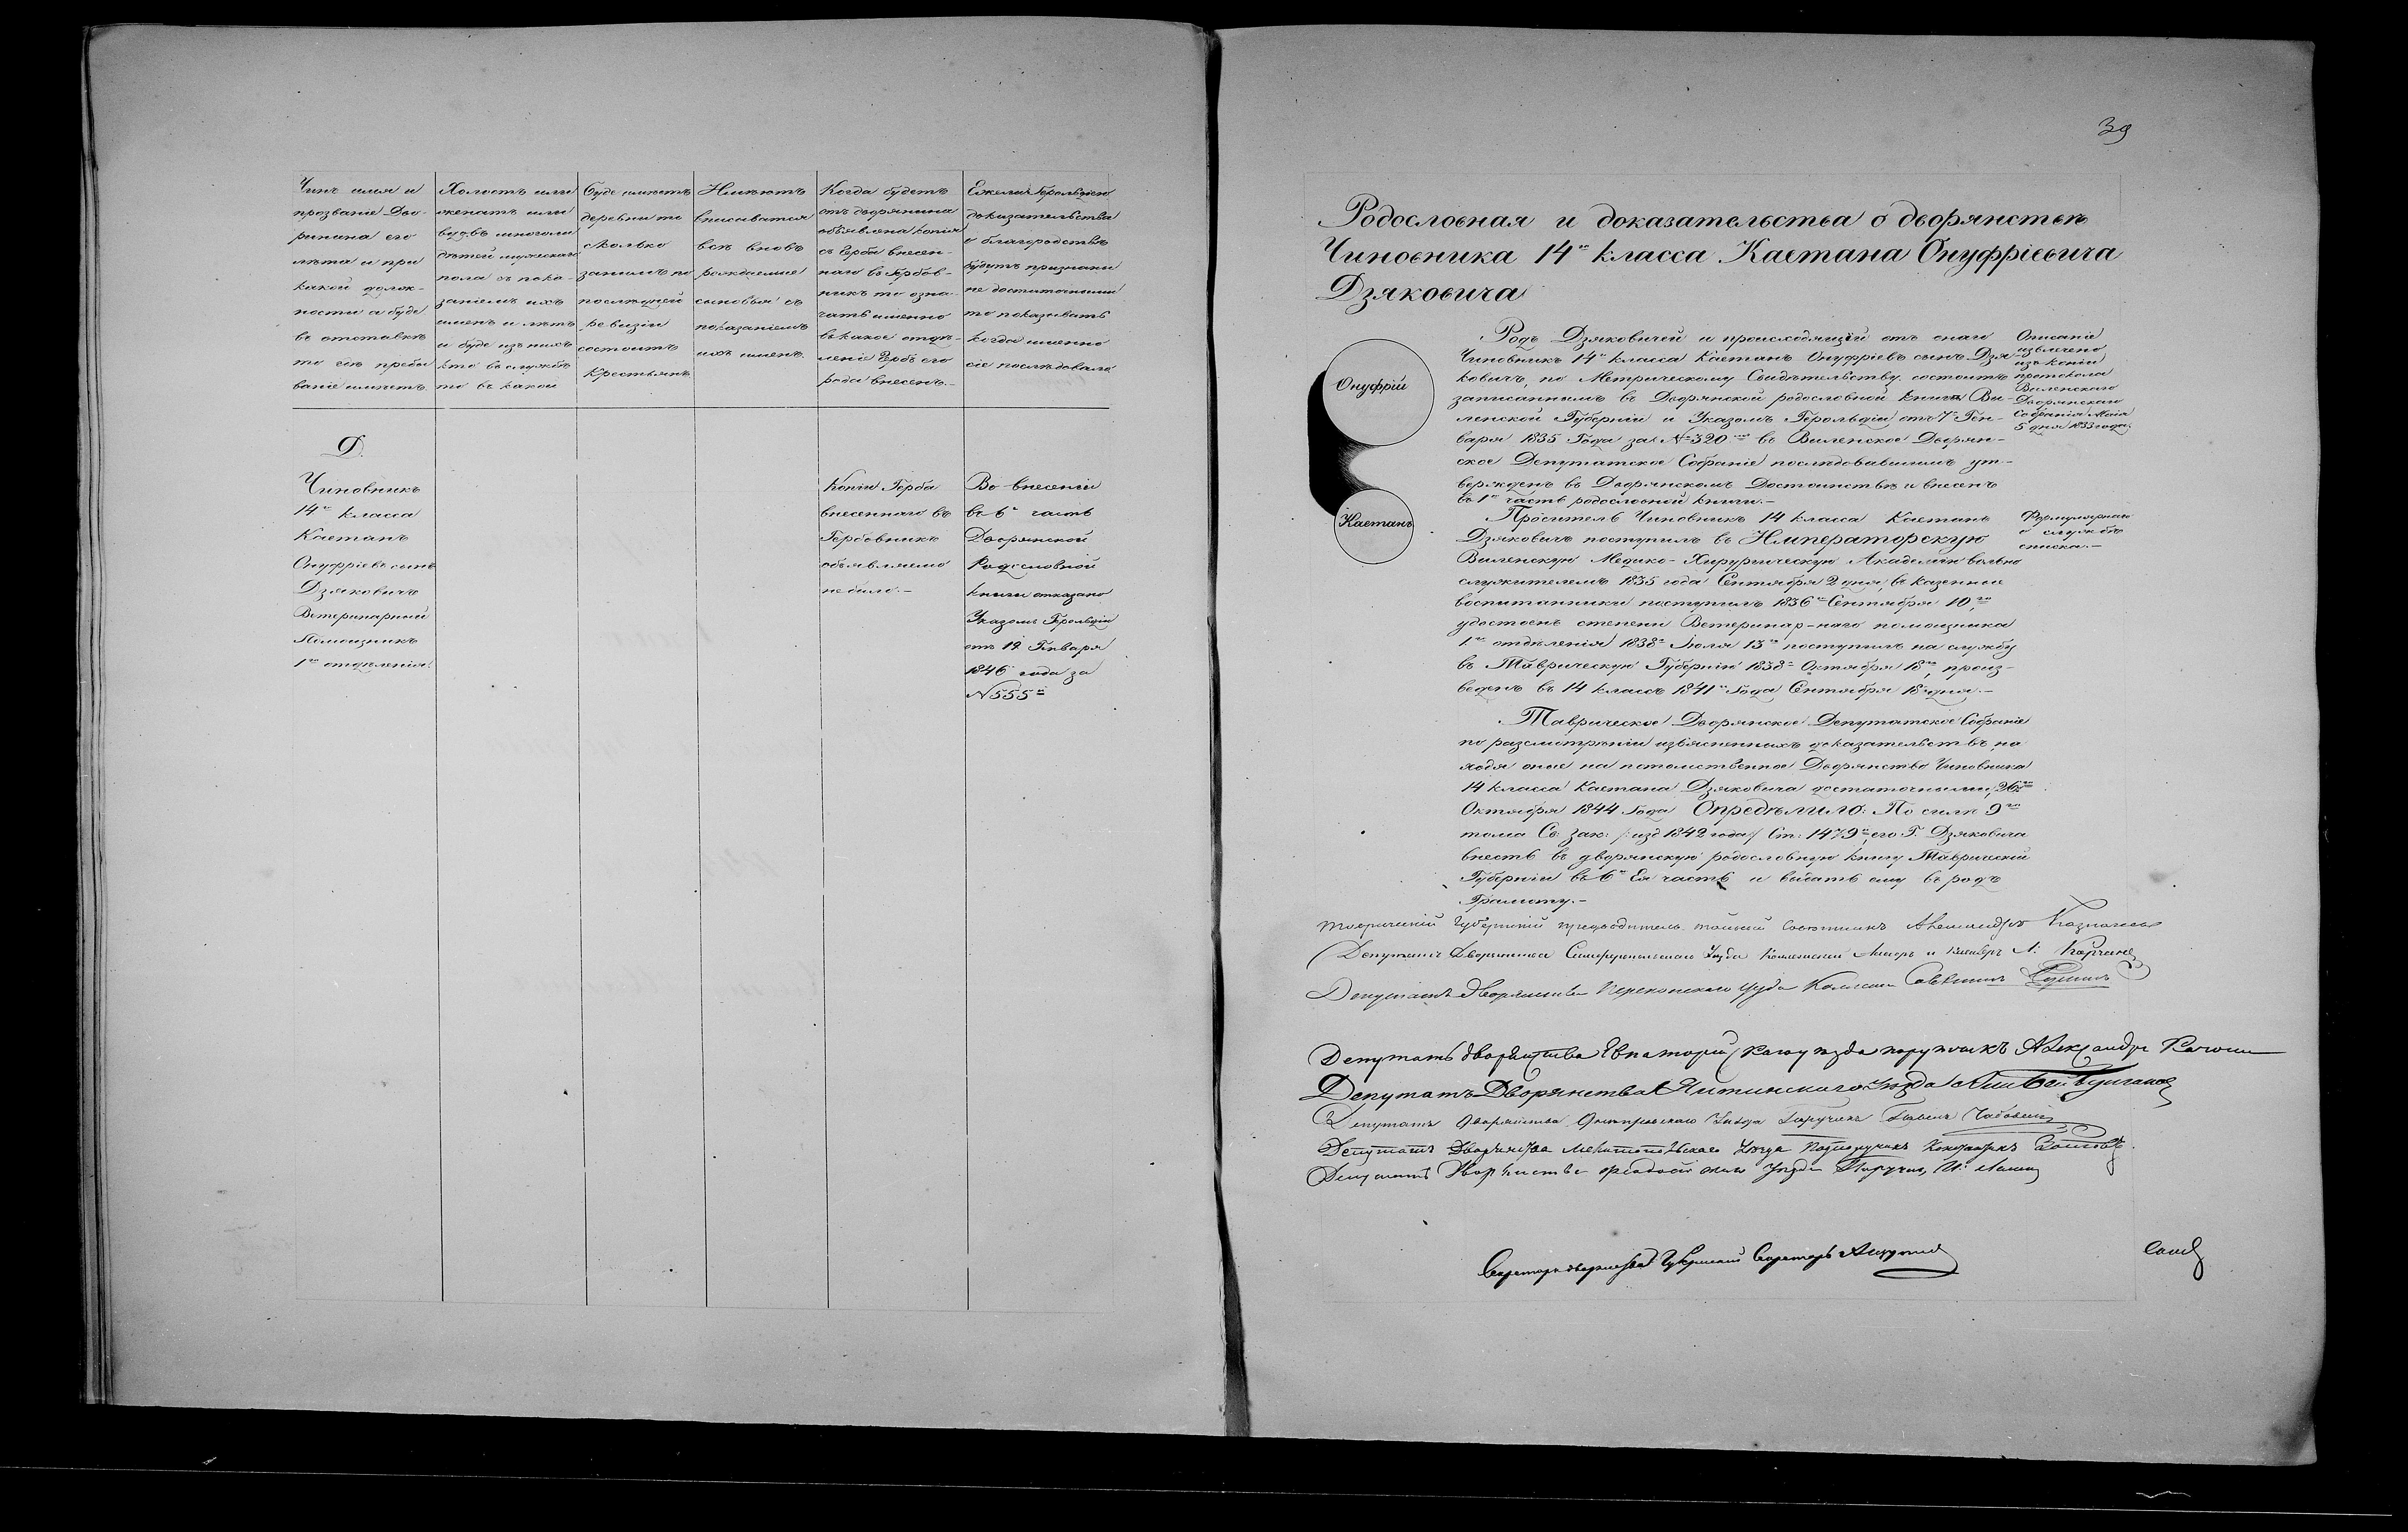 Чинъ имя и
прозваніе Дво-
рянина его
лѣта и при
какой долж-
ности а буде
въ отставкѣ
то гдѣ пребы
ваніе имѣетъ.
Холостъ или
женатъ или
вдовъ многоли
дѣтей мужескаго
пола съ пока-
заніемъ ихъ
именъ и лѣтъ
и буде изъ нихъ
кто въ службѣ
то въ какой
Буде имѣетъ
деревни то
сколько
заними по
послѣдней
ревизіи
состоитъ
Крестьянъ
Имѣютъ
вписыватся
всѣ вновь
рождаемые
сыновья съ
показаніемъ
ихъ именъ.
Когда будетъ
отъ дворянина
объявлена копія
съ Герба внесен-
наго въ Гербов-
никъ то озна-
чать именно
въ какое отдѣ-
леніе Гербъ его
рода внесенъ.-
Ежели Герольдіею
доказательства
о благородствѣ
будутъ признаны
не достаточными
то показывать
когда именно
сіе послѣдовало
Д.
Чиновникъ
14го класса
Каетанъ
Онуфріевъ сынъ
Дзяковичъ
Ветеринарный
Помощникъ
1го отдѣленія.
Копіи Герба
внесеннаго въ
Гербовникъ
объявляемо
не было.-
Во внесеніи
въ 6ю часть
Дворянской
Родословной
книги отказано
Указомъ Герольдіи
отъ 19 Генваря
1846 года за
№555м
39
Родословная и доказательства о дворянствѣ
Чиновника 14го класса Каетана Онуфріевича
Дзяковича
Онуфрій
Каетанъ
Родъ Дзяковичей и происходящій отъ онаго
Чиновникъ 14го класса Каетанъ Онуфріевъ сынъ Дзя
ковичъ, по Метрическому Свидѣтельству состоитъ
записаннымъ въ Дворянской родословной книгѣ Ви-
ленской Губерніи и Указомъ Герольдіи отъ 7го Ген-
варя 1835 Года за №320м въ Виленское Дворян-
ское Депутатское Собраніе послѣдовавшимъ ут-
вержденъ въ Дворянскомъ Достоинствѣ и внесенъ
въ 1ю часть родословной книги.-
Описаніе
извлечено
изъ копіи
протокола
Виленскаго
Дворянскаго
Собранія Маія
5 дня 1833 года.
Проситель Чиновникъ 14 класса Каетанъ
Дзяковичъ поступилъ въ Императорскую
Виленскую Медико-Хирургическую Академію вольно
служителемъ 1835 года Сентября 2 дня, въ казенные
воспитанники поступилъ 1836го Сентября 10го,
удостоенъ степени Ветеринар-наго помощника
1го отдѣленія 1838го Іюля 13го поступилъ на службу
въ Таврическую Губернію 1838го Октября 18го, произ-
веденъ въ 14 классъ 1841го Года Сентября 18 дня.-
Формулярнаго
о службѣ
списка.-
Таврическое Дворянское Депутатское Собраніе
по разсмотрѣніи изъясненныхъ доказательствъ, на
ходя оные на потомственное Дворянство Чиновника
14 класса Каетана Дзяковича достаточными, 26го
Октября 1844 Года Опредѣлило: По силѣ 9го
тома Св: Зак: /: изд 1842 года :/ Ст: 1479й, его Г. Дзяковича
внесть въ дворянскую родословную книгу Таврической
Губерніи въ 6ю Ея часть и выдать ему въ родъ
Грамоту.-
Таврическій Губернскій предводитель тайный Совѣтникъ Александръ Казначеевъ
Депутатъ Дворянства Симферопольскаго Уѣзда Коллежскій
Депутатъ дворянства Перекопскаго уѣзда
Депутатъ дворянства Евпаторійскаго уѣзда поручикъ Александръ
Депутатъ Дворянства Ялтинскаго Уѣзда
Депутатъ дворянства Днѣпровскаго Уѣзда Поручикъ Павелъ
Депутатъ Дворянства Мелитопольскаго Уѣзда
Депутатъ Дворянства Ѳеодосійскаго Уѣзда Поручикъ
Секретарь дворянства Губернскій Секретарь